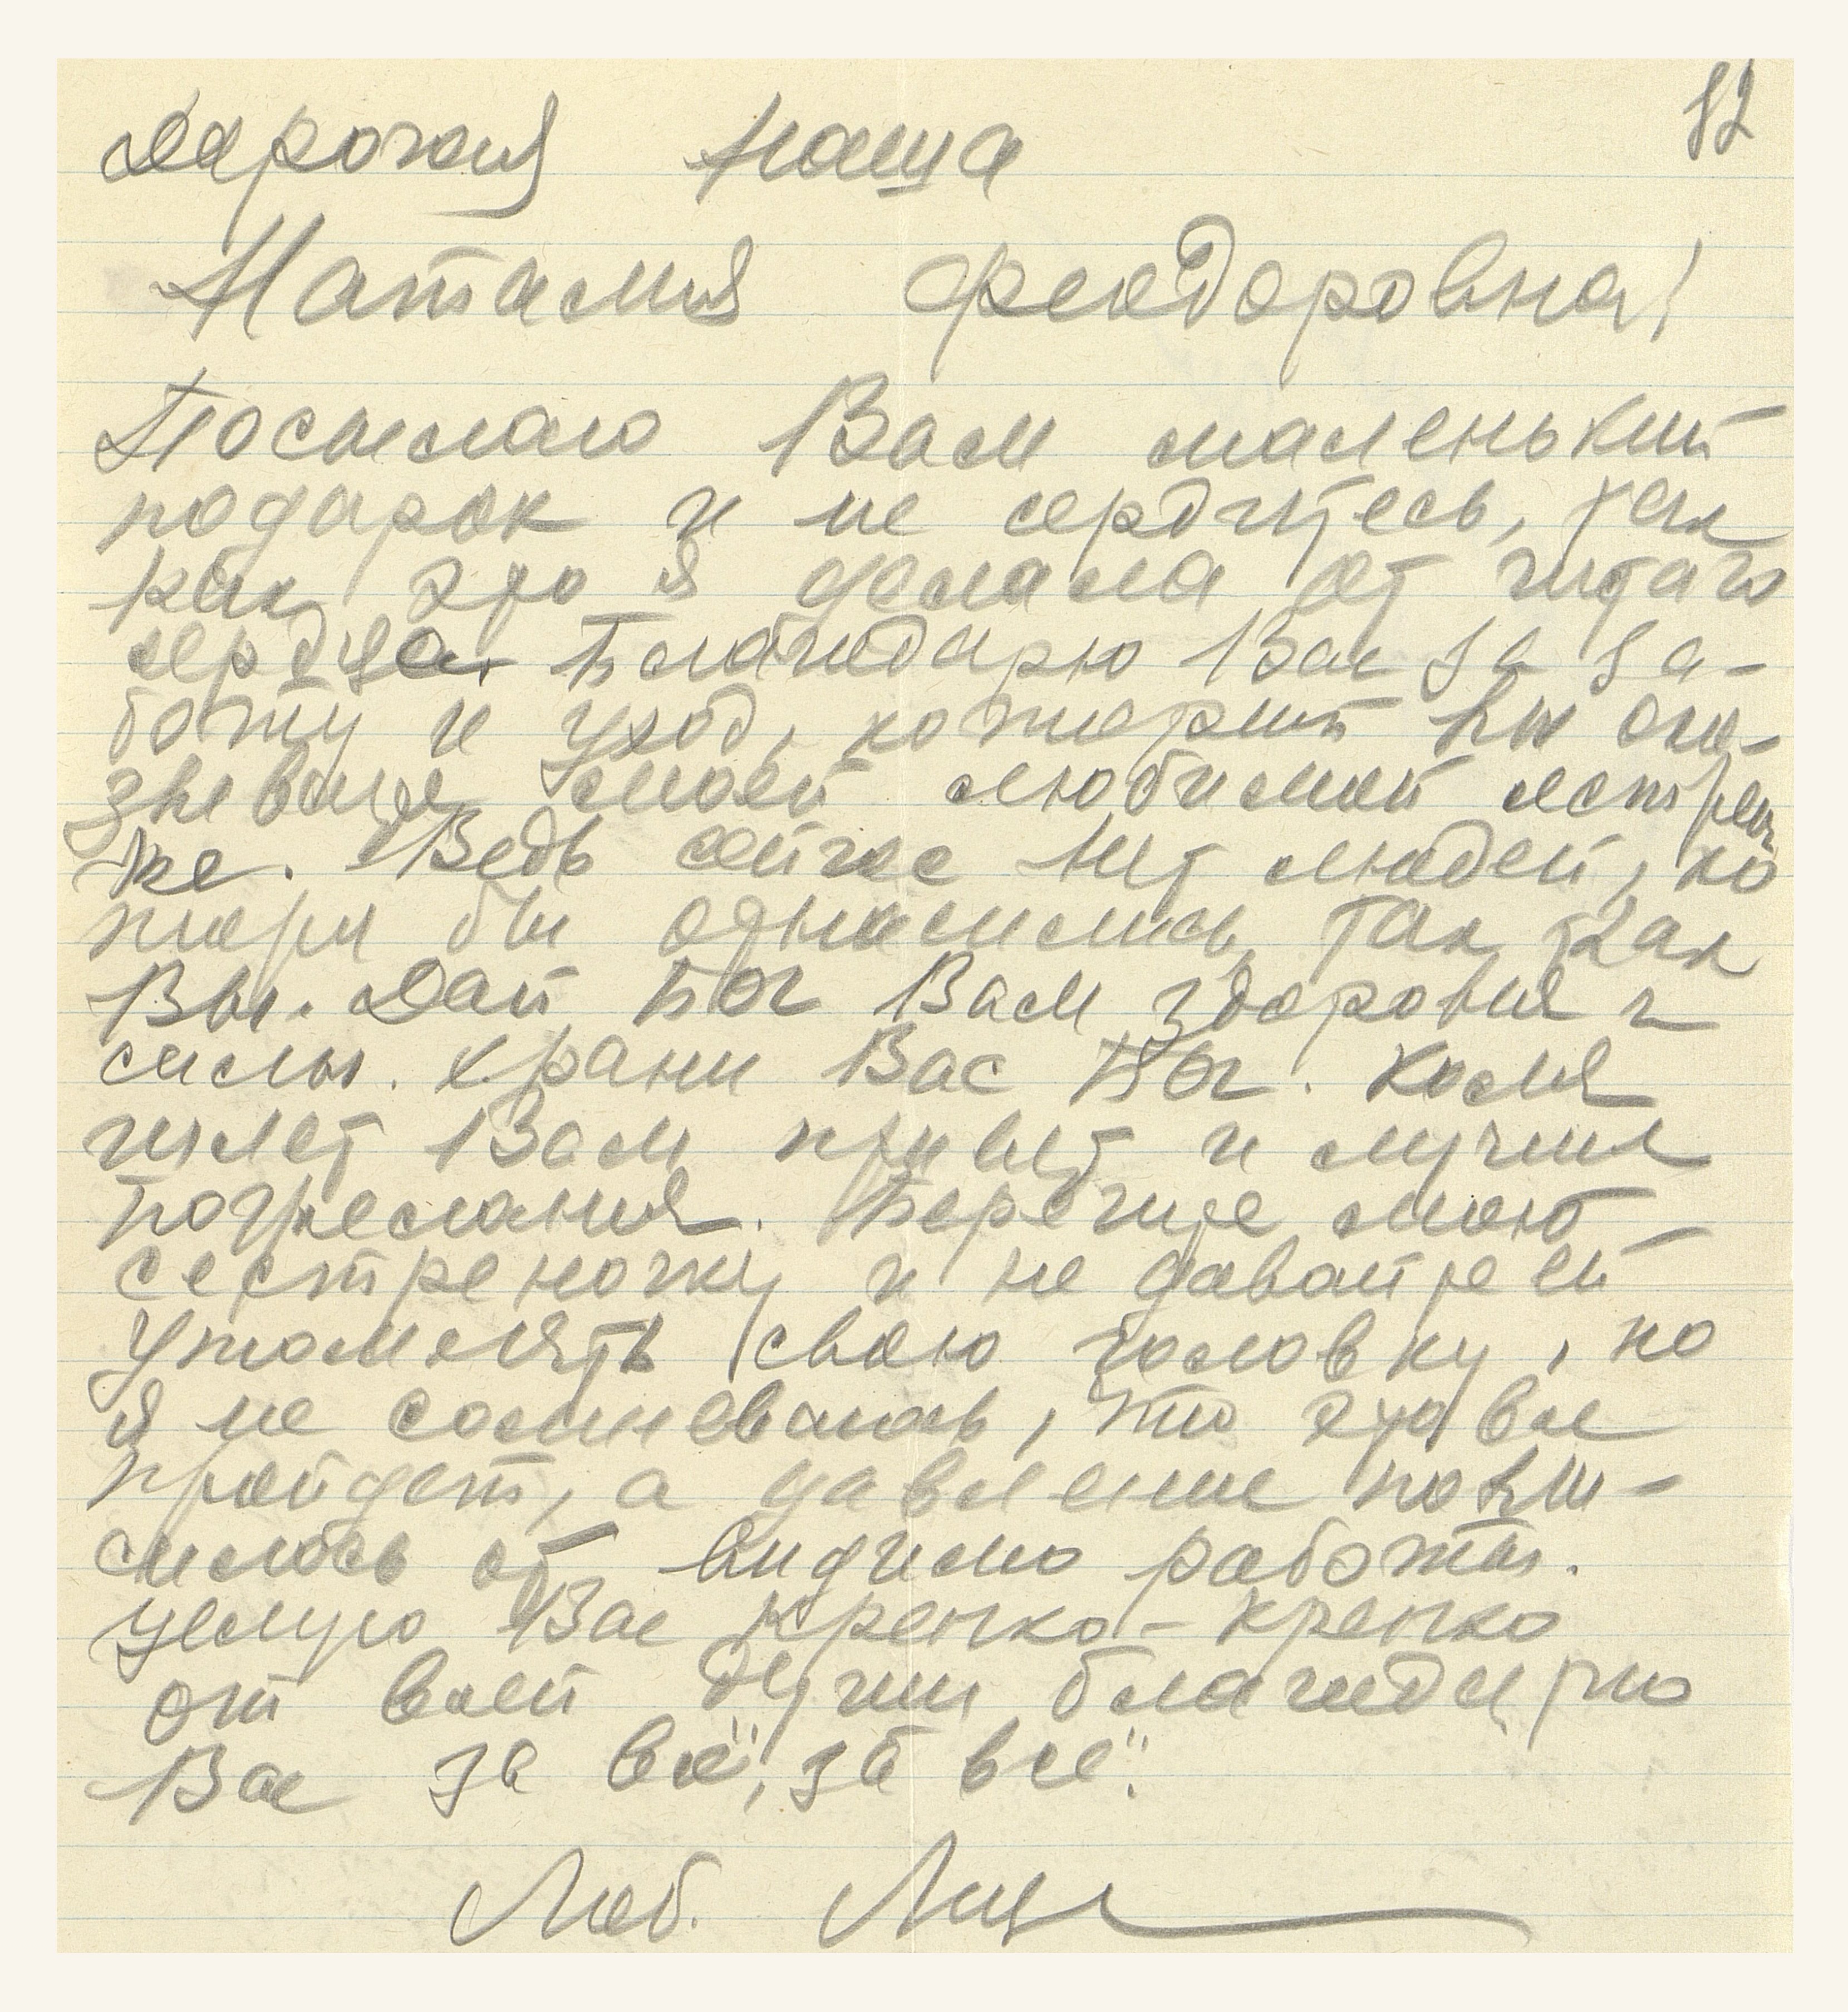 82
Дарогая наша
Наталия Феодоровна!
Посылаю Вам маленький
подарок и не сердитесь, так
как это я делала от чистаго
сердца. Благодарю Вас за за-
боту и уход, который Вы ока-
зываете моей любимой сестрен-
ке. Ведь сейчас нет людей, ко
торы бы отнеслись так как
Вы. Дай Бог Вам здоровия и
силы. Храни Вас Бог. Коля
шлет Вам привет и лучшия
пожелания. Берегите мою
сестреночку и не давайте ей
утомлять свою головку, но
я не сомневаюсь, что это все
пройдет, а давление повы-
силось от видимо работы.
Целую Вас крепко-крепко
от всей души благодарю
Вас за всё, за всё.
Люб.